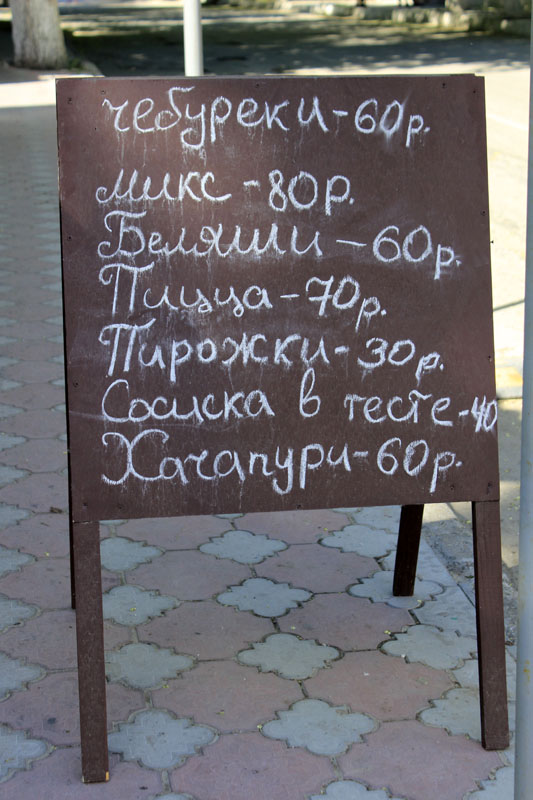 чебуреки-60р.
микс-80р.
Беляши-60р.
Пицца-70р.
Пирожки-30р.
Сосиска в тесте-40
Хачапури-60р.